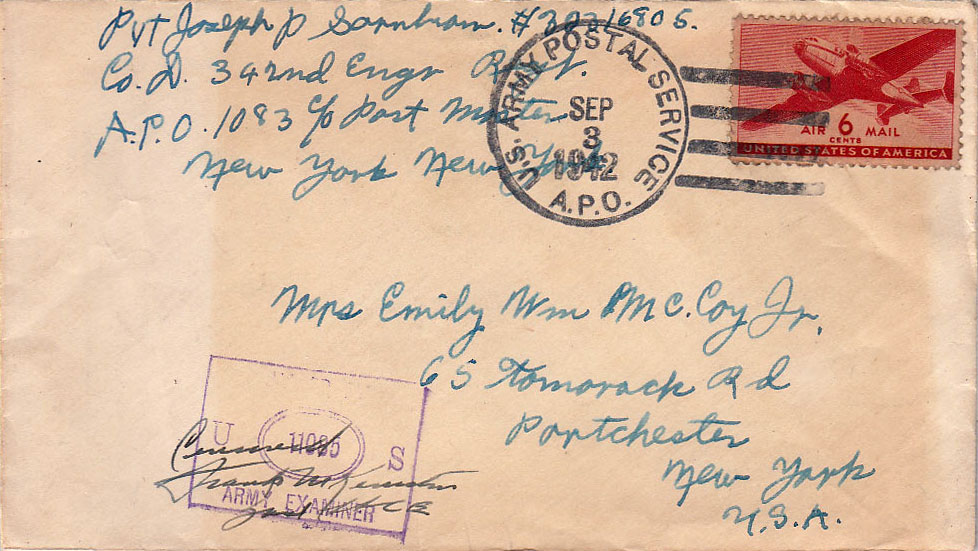 Pvt Joseph D #32216805.
Co. D. 342nd Engr Regt.
A.P.O. 1083 c/o Post Master
New York New York
U.S. ARMY POSTAL SERVICE
SEP
3
1942
A.P.O.
AIR 6 MAIL
CENTS
UNITED STATES OF AMERICA
Mrs Emily Wm Mc.Coy Jr.
65 Tomorack Rd
Portchester
New York
U.S.A.
U 11085 S
Censored
Frank
ARMY EXAMINER